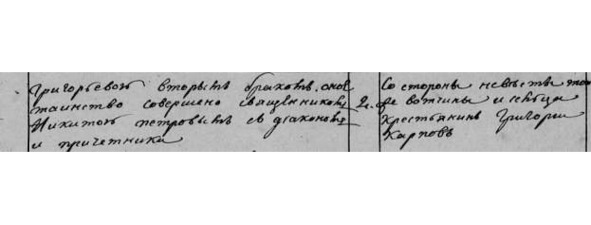 Григорьевою вторымъ бракомъ, оное
таинство совершено священникомъ
Никитою петровымъ съ діакономъ
и причетники
2е.
Со стороны невѣсты тои
же вотчины и
крестьянинъ Григории
Карповъ